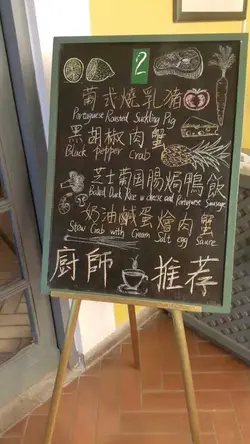 2
葡式燒乳豬
Portuguese Roasted Suckling Pig
黑胡椒肉蟹
Black pepper Crab
芝士葡国腸焗鴨飯
Baked Duck Rice w cheese and Portuguese Sausage
奶油鹹蛋燴肉蟹
Stew Crab with Cream Salt egg Sauce
厨師 推荐